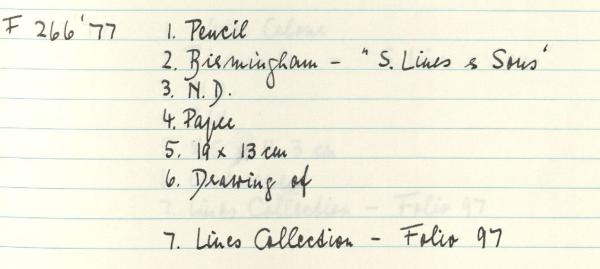 F 266'77 1. Pencil
2. Birmingham - "S. Lines & Sons"
3. N.D.
4. Paper
5. 19 x 13 cm
6. Drawing of
7. Lines Collection - Folio 97